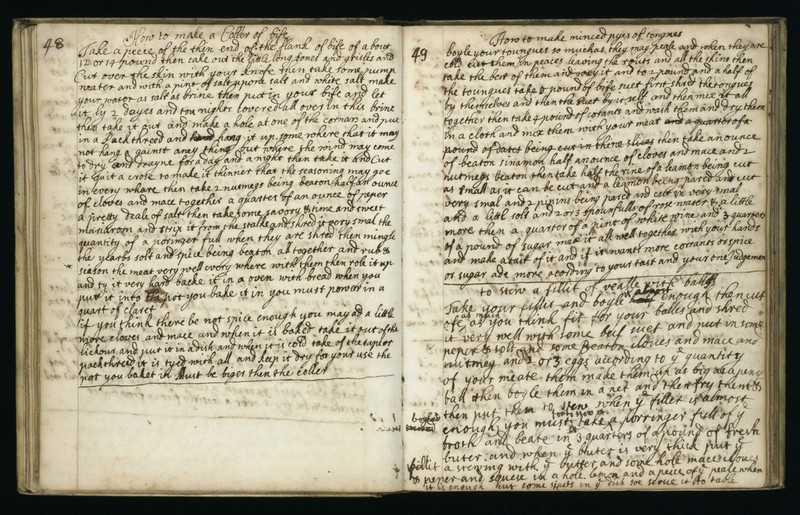 48
How to make a Coller of bife
Take a peece of the thin end of the flank of bife of about
12 or 14 pound then take out the little long bones and grisles and
Cut over the skin with your knife then take some pump
water and with a pint of salt and white salt make
your water as salt as brine then put in your bife and let
it ly 2 dayes and too nights covered all over in this brine
then take it out and make a hole at one of the cornars and put
in a packthreed and hang it up some where that it may
not hang a gainst aney thing but where the wind may come
to dry and drayne for a day and a night then take it and Cut
it quit a crose to make it thinner that the seasoning may goe
in every whare then take 2 nutmegs being beaton half an ounce
of cloves and mace together a quarter of an ounce of peper
a pretty deale of salt then take some savory & time and sweet
mariarom and strip it from the stalke and shred it very smal the
quantity of a poringer full when they are shred then mingle
the yearbs salt and spice being beaton all together and rub &
season the meat very well every where with them then role it up
and ty it very hard backe it in a oven with bread when you
put it into the pot you bake it in you must power in a
quart of claret
if you think there be not spice enough you may ad a little
more cloves and mace and when it is baked take it out of the
lickour and put it in a dish and when it is cold take of the
packthreed it is tyed with all and keep it dry for your use the
pot you baket in must be biger then the coller
49
How to make minced pyes of tongues
boyle your toungues so much as they may peale and when they are
cold cut them in peaces leaving the routs and all the skine then
take the best of them and wey it and to 2 pound and a half of
the toungues take 4 pound of bife suet first shred the tongues
by themselves and then the suet by it self and then mix it all
together then take 4 pound of corants and wash them and dry them
in a cloth and mix them with your meat and a quarter of a
pound of dates being cut in thine slices then take an ounce
of beaton sinamon half an ounce of cloves and mace and 2
nutmegs beaton then take half the rine of a leamon being cut
as small as it can be cut and a leamon being pared and cut
very smal and 2 pipins being pared and cut in very smal
and a littel solt and 2 or 3 spounfulls of rose water & a little
more then a quarter of a pint of white wine and 3 quarters
of a pound of sugar mix it all well together with your hands
and make a tast of it and if it wants more corrants or spice
or sugar ade more acording to your tast and your one Judgemen
to stew a fillit of vealle with balls
Take your fillit and boyle it almost enough then cut
ofe as much as you think fit for your balls and shred
it very well with some beif suet and put in some
peper & solt and some beaton cloves and mace and
nutmeg and 2 or 3 eggs acording to ye quantity
of your meate then make them up as big as a pany
ball then boyle them in a net and then fry them &
then put them to stew when ye fillet is almost
enough you must take a porringer full of ye
broth and beate in 3 quarters of a pound of fresh
buter and when ye buter is very thick put ye
fillit a stewing with ye butter and some hole mace cloves
& peper and squese in a hole lemon and a peece of ye peale when
it is enough put some in ye dish soe serve it to table